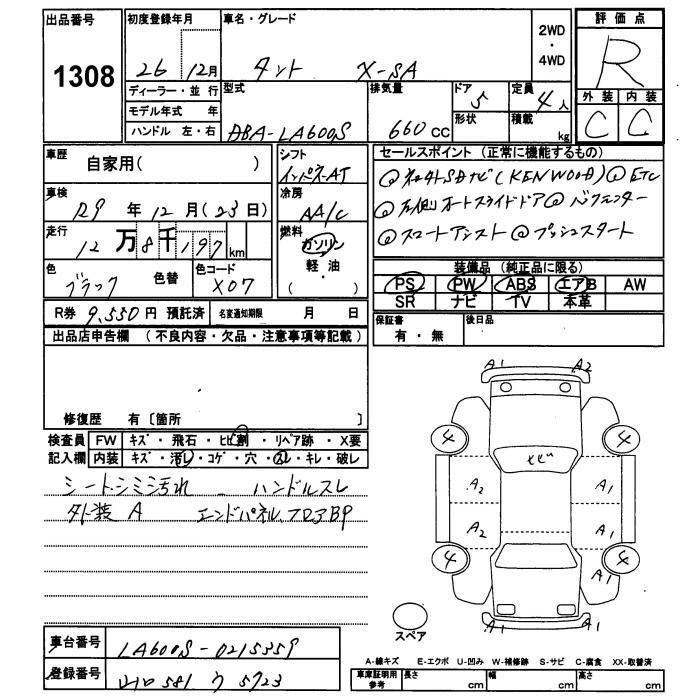 出品番号 初度登録年月 車名・グレード 2WD・4WD 評価点
1308 26 12月 タント X-SA R
ディーラー・並行 型式 排気量 ドア 定員 外装 内装
モデル年式 年 DBA-LA600S 660cc 5 4人 C C
ハンドル 左・右 形状 積載 kg
車歴 自家用( ) シフト インパネAT セールスポイント(正常に機能するもの)
車検 R9年12月(23日) 冷房 AA/C
◎ ネオト SDナビ(KENWOOD) ◎ ETC
走行 12万8千197km 燃料 ガソリン
◎ 左側オートスライドドア ◎ バックモニター
軽油・( )
◎ スマートアシスト ◎ プッシュスタート
色 ブラック 色替 色コード X07
装備品(純正品に限る)
PS PW ABS エアB AW
SR ナビ TV 本革
R券 9,550円 預託済 名変通知期限 月 日
保証書 有・無 後日品
出品店申告欄(不良内容・欠品・注意事項等記載)
修復歴 有〔箇所 〕
検査員 FW キズ・飛石・ヒビ割・リペア跡・X要
記入欄 内装 キズ・汚レ・コゲ・穴・スレ・キレ・破レ
シートシミ汚れ ハンドルスレ
外装 A エンドパネル、フロアBP
A1 A2
4 4
ヒビ
A2 A1
A2 A1
4 4
A1
A1 A1
スペア
車台番号 LA600S-0215359
登録番号 山口 581 ウ 5723
A-線キズ E-エクボ U-凹み W-補修跡 S-サビ C-腐食 XX-取替済
車庫証明用参考 長さ cm 幅 cm 高さ cm